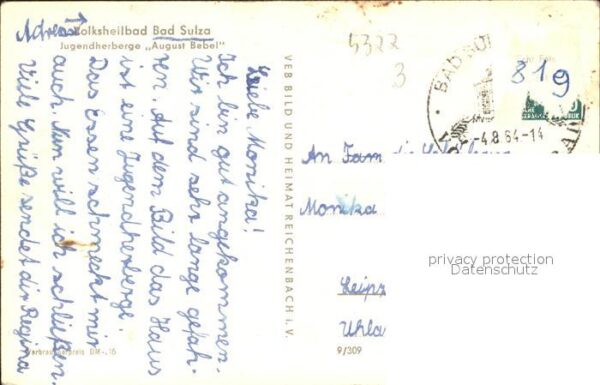 Adresse
Volksheilbad Bad Sulza
Jugendherberge „August Bebel"
Liebe Monika!
Ich bin gut angekommen.
Wir sind sehr lange gefah-
ren. Auf dem Bild das Haus
ist eine Jugendherberge.
Das Essen schmeckt mir
auch. Nun will ich schließen.
Viele Grüße sendet dir Regina
Verbraucherpreis DM -,16
VEB BILD UND HEIMAT REICHENBACH i. V.
9/309
5322
3
BAD SUL
819
-4.8.64-14
An Familie
Monika
Leipz
Uhla
privacy protection
Datenschutz